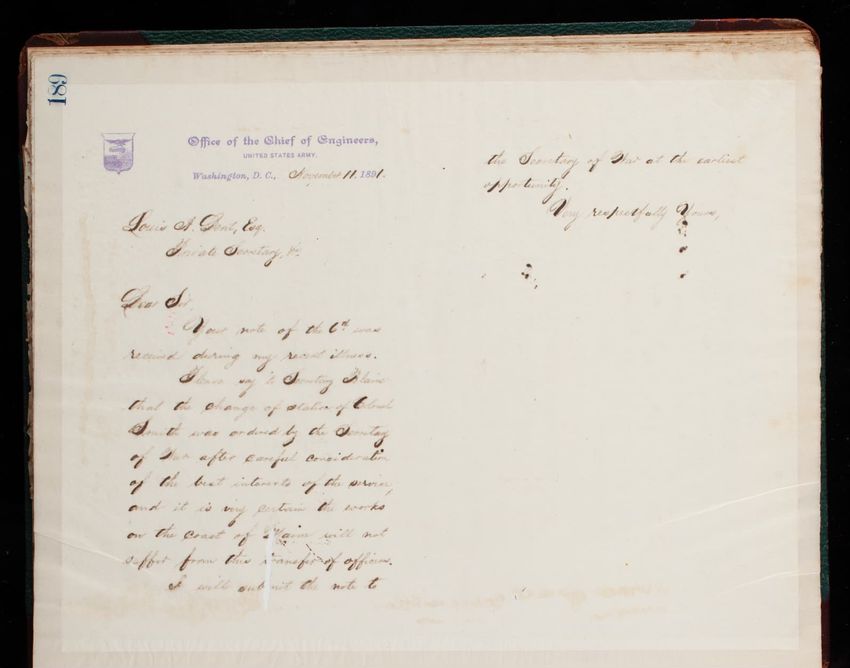 189
Office of the Chief of Engineers,
UNITED STATES ARMY.
Washington, D. C., November 11, 1891.
Louis A. Dent, Esq.
Private Secretary, &c.
Dear Sir,
Your note of the 6th was
received during my recent illness.
Please say to Secretary Blaine
that the change of station of Colonel
Smith was ordered by the Secretary
of War after careful consideration
of the best interests of the service,
and it is very certain the works
on the coast of Maine will not
suffer from this transfer of officers.
I will submit the note to
the Secretary of War at the earliest
opportunity.
Very respectfully Yours,